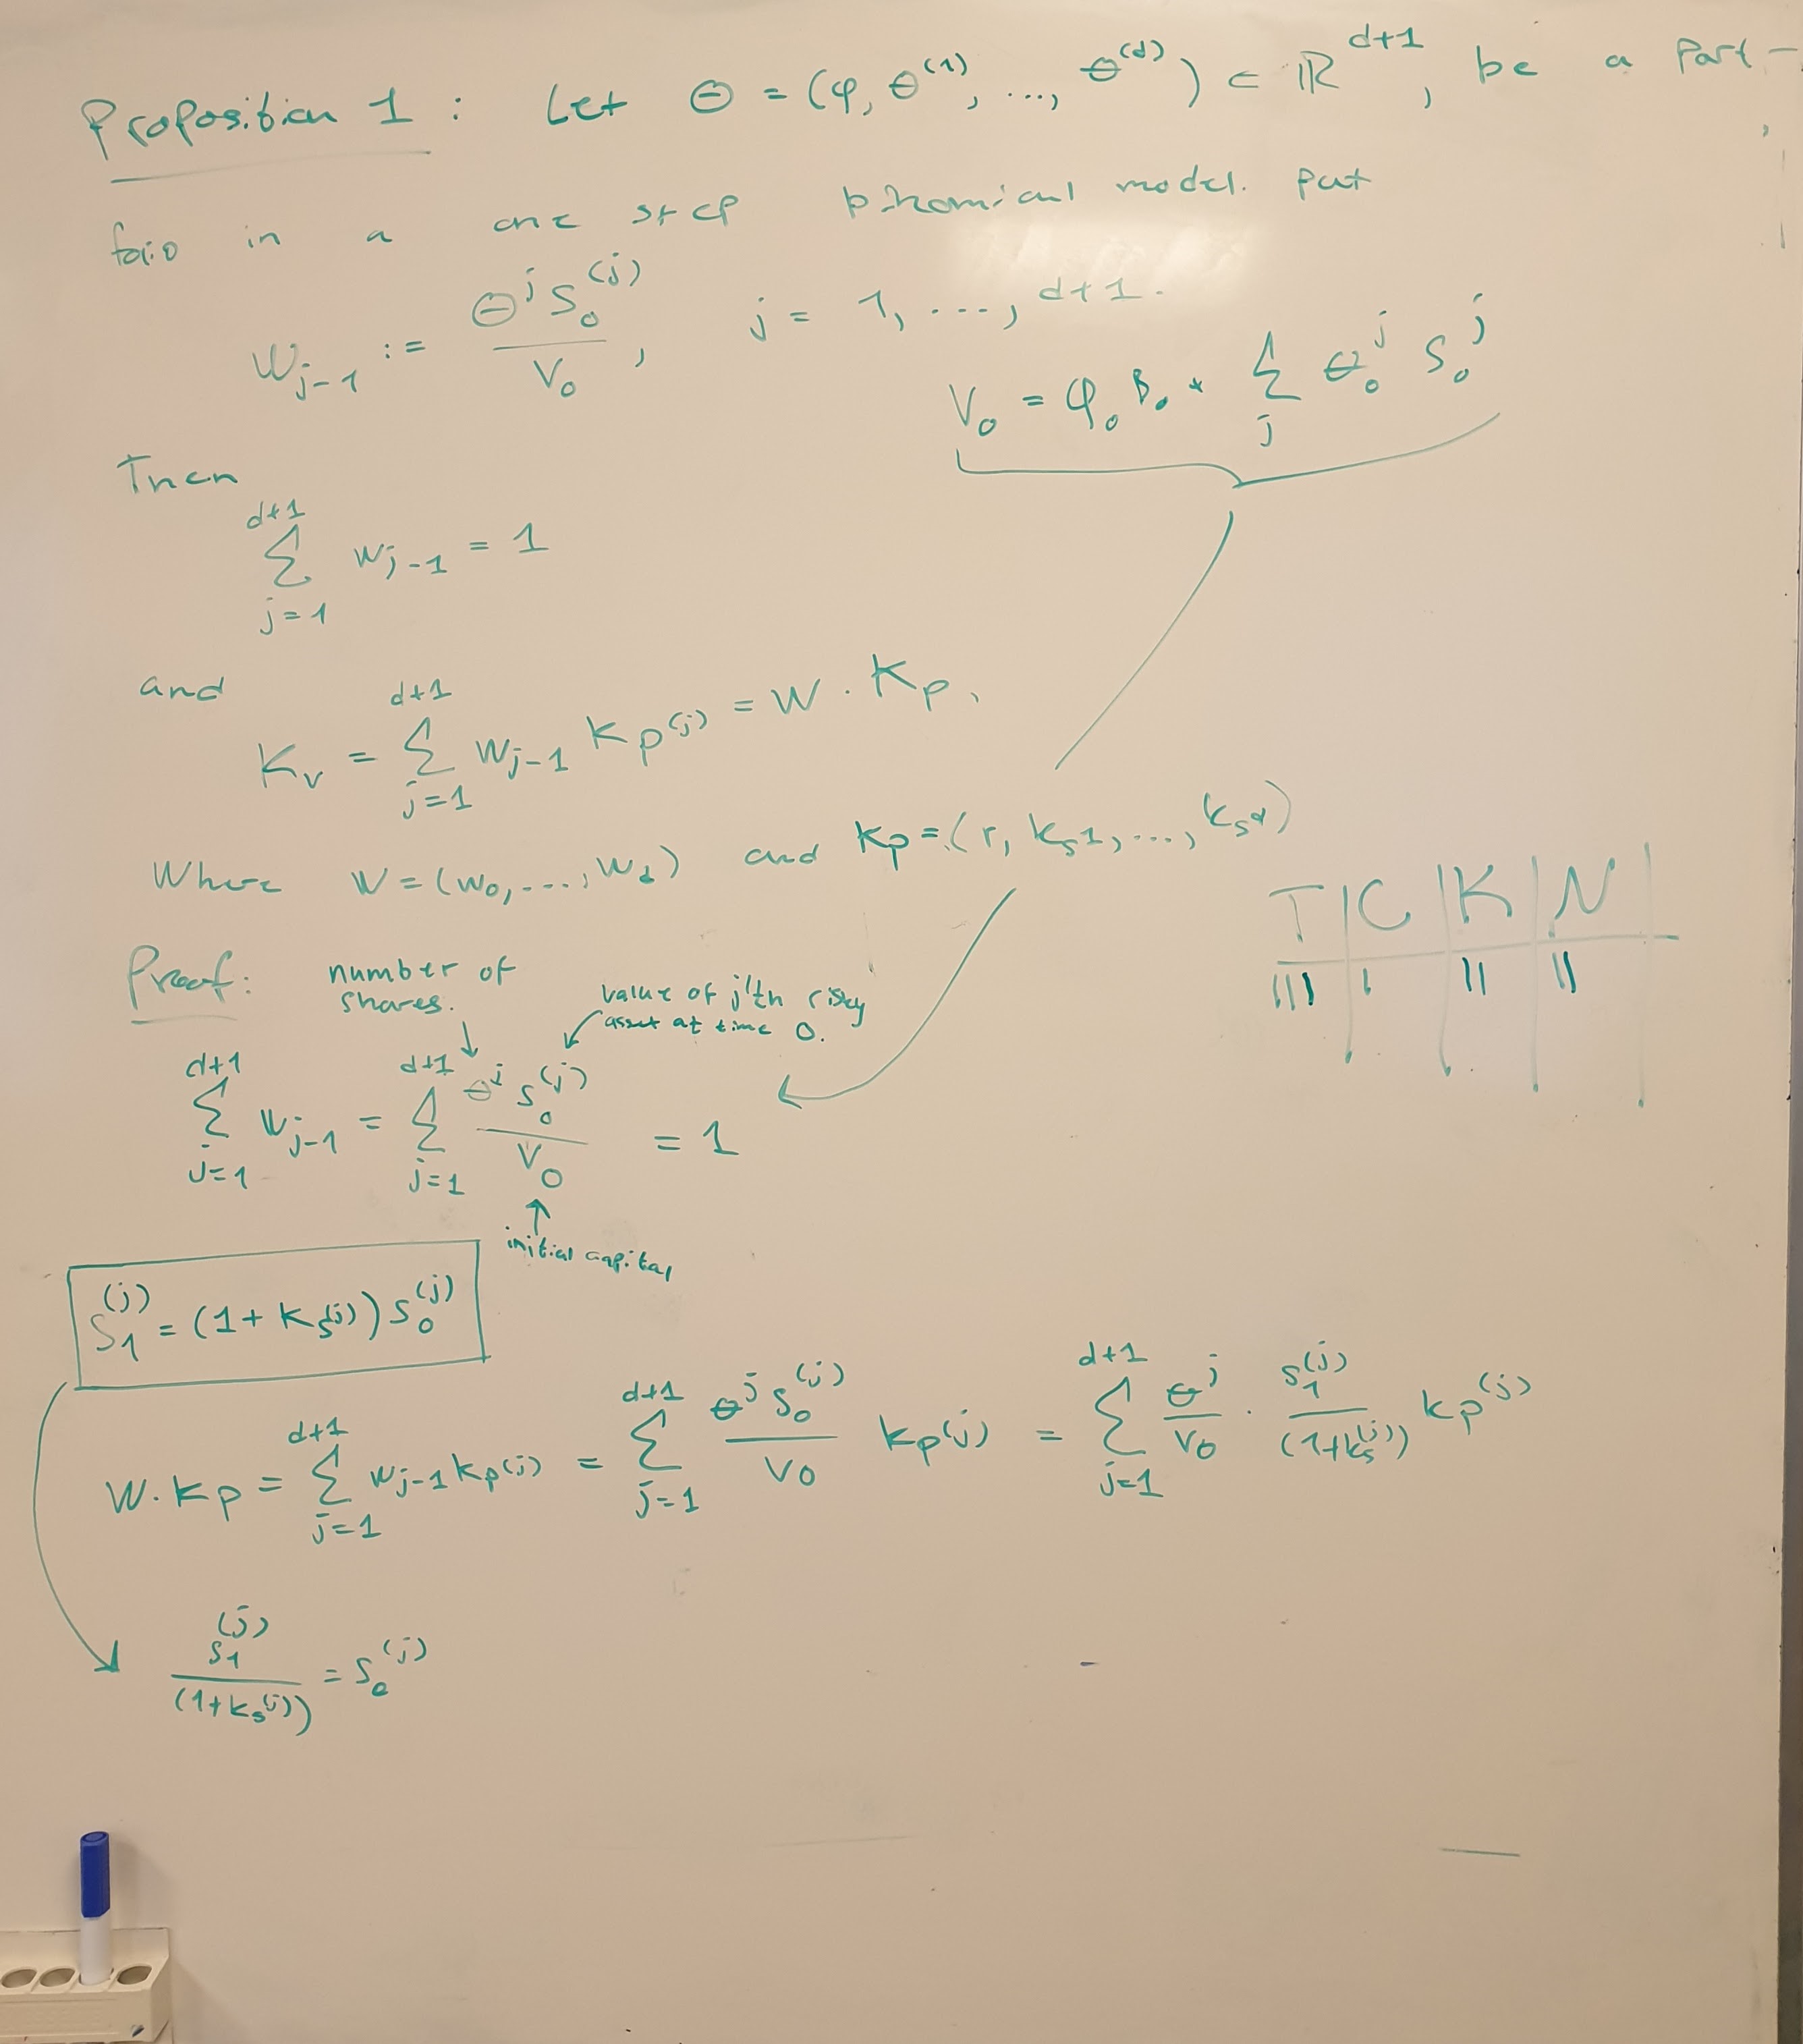 Proposition 1 : Let Θ = (φ, θ^(1), ..., θ^(d)) ∈ ℝ^{d+1}, be a Port-
folio in a one step binomial model. Put
W_{j-1} := Θ^j S_0^(j) / V_0 , j = 1, ..., d+1.
V_0 = φ_0 B_0 + Σ_j θ_0^j S_0^j
Then
Σ_{j=1}^{d+1} W_{j-1} = 1
and
K_V = Σ_{j=1}^{d+1} W_{j-1} K_{P^(j)} = W · K_P,
Where W = (W_0, ..., W_d) and K_P = (r, K_{S^1}, ..., K_{S^d})
T | C | K | N |
||| | | | || | ||
Proof: number of
shares.
value of j'th risky
asset at time 0.
Σ_{j=1}^{d+1} W_{j-1} = Σ_{j=1}^{d+1} θ^j S_0^(j) / V_0 = 1
initial capital
S_1^(j) = (1 + K_{S^(j)}) S_0^(j)
W · K_P = Σ_{j=1}^{d+1} W_{j-1} K_{P^(j)} = Σ_{j=1}^{d+1} θ^j S_0^(j) / V_0 K_{P^(j)} = Σ_{j=1}^{d+1} θ^j / V_0 · S_1^(j) / (1+K_S^(j)) K_{P^(j)}
S_1^(j) / (1+K_S^(j)) = S_0^(j)